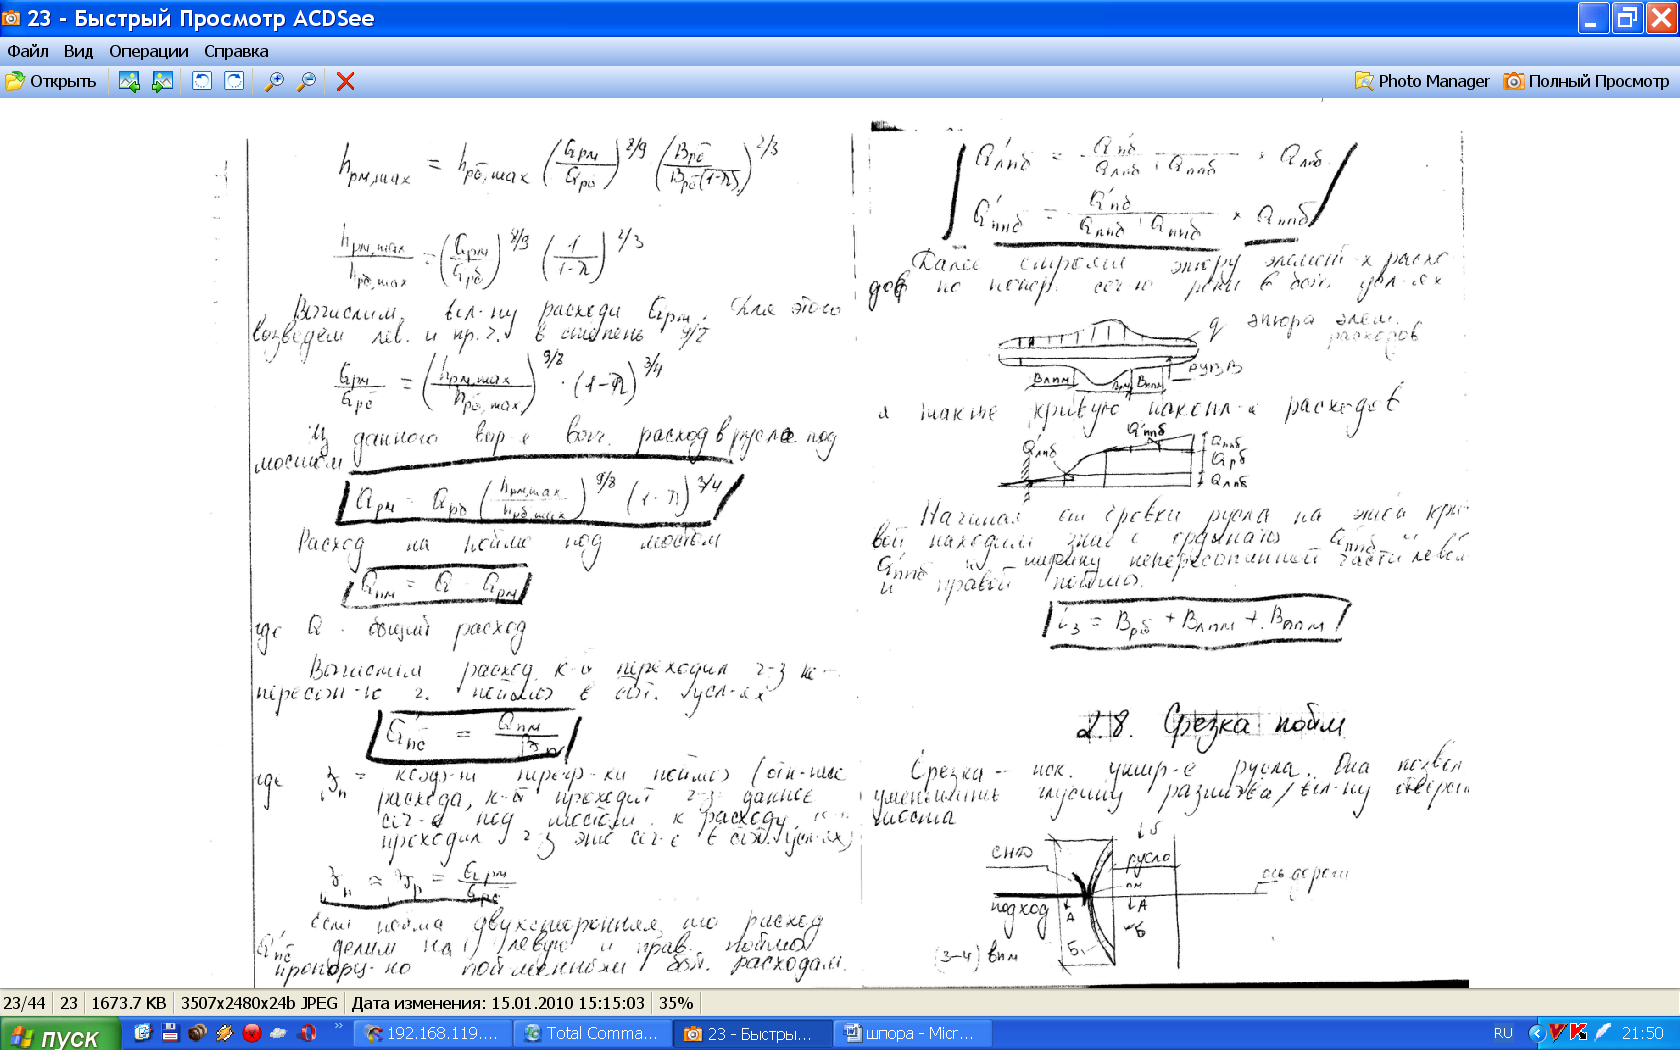 23 - Быстрый Просмотр ACDSee
Файл Вид Операции Справка
Открыть
Photo Manager Полный Просмотр
h рм,max = h рб,max (Qрм/Qрб)^8/9 (Bрб/Bрб(1-λ))^2/3
hрм,max/hрб,max = (Qрм/Qрб)^8/9 (1/1-λ)^2/3
Вычислим вел-ну расхода Qрм. Для этого
возведем лев. и пр. ч. в степень 9/8
Qрм/Qрб = (hрм,max/hрб,max)^9/8 · (1-λ)^3/4
Из данного выр-е выч. расход в русле под
мостом
Qрм = Qрб (hрм,max/hрб,max)^9/8 (1-λ)^3/4
Расход на пойме под мостом
Qпм = Q - Qрм
где Q - общий расход
Вычислим расход, к-й переходил ч-з не-
пересып-ю ч. поймы в быт. усл-ях
Q'пб = Qпм/
где = коэф-т перегр-ки поймы (отн-ние
расхода, к-й проходит ч-з данное
сеч-е под мостом к расходу
проходил ч-з это сеч-е в быт. усл-ях)
≈ = Qрм/Qрб
Если пойма двухсторонняя, то расход
Q'пб делим на левую и прав. пойму
пропорц-но пойменным быт. расходам.
Q'лпб = Q'пб/Qлпб + Qппб × Qлпб
Q'ппб = Q'пб/Qлпб + Qппб × Qппб
Далее строим эпюру элемент-х расхо
дов по попер. сеч-ю реки в быт. усл-ях
q эпюра элем.
расходов
Bлпм Bрм Bппм РУВВ
а также кривую накопл-я расходов
Q'лпб Q'ппб Qппб
Qрб
Qлпб
Начиная от бровки русла на этой кри
вой находим знач-е ординаты
Q'ппб и ширину непересыпанной части левой
и правой поймы.
= Bрб + Bлпм + Bппм
2.8. Срезка пойм
Срезка - иск. ушир-е русла. Она позвол
уменьшить глубину размыва/вел-ну отверст
моста
русло
подход
А А
ось дороги
Б
(3-4) hпм
23/44 23 1673.7 KB 3507x2480x24b JPEG Дата изменения: 15.01.2010 15:15:03 35%
пуск
192.168.119....
Total Comma...
23 - Быстры...
шпора - Micr...
RU
21:50